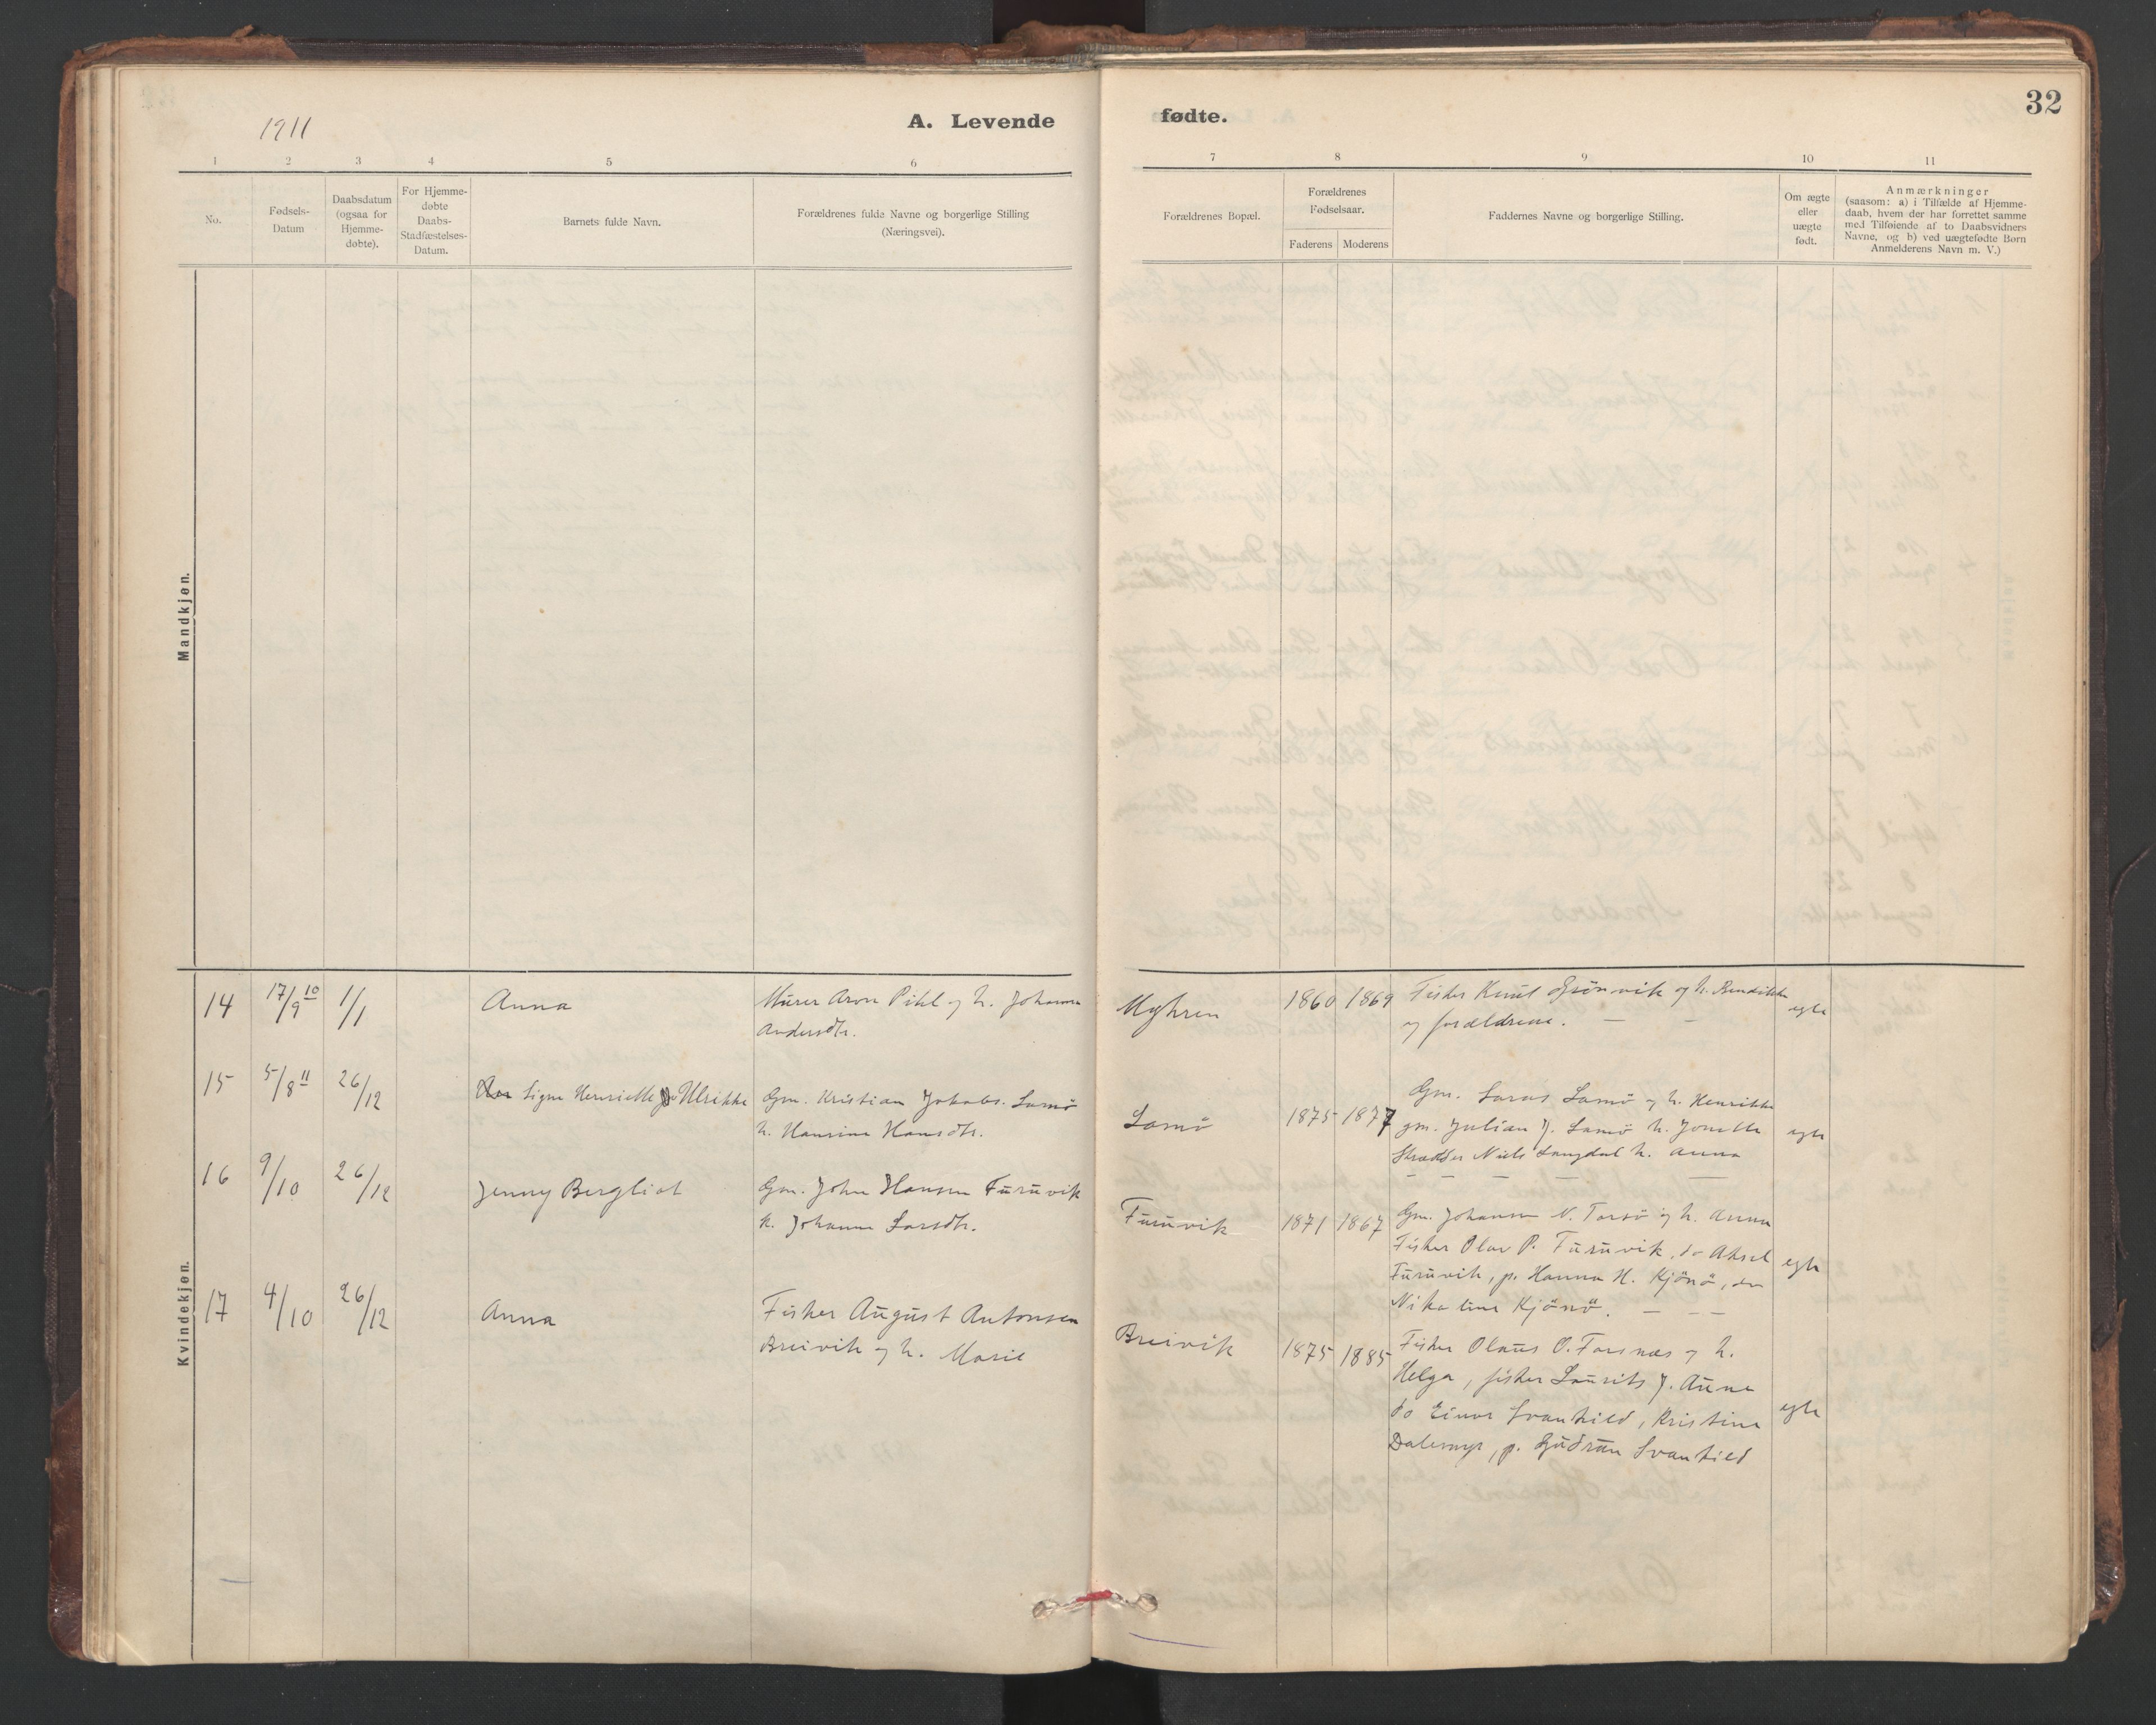 1911
A. Levende
fødte.
32
1 2 3 4 5 6
7 8 9 10 11
No.
Fødsels-
Datum
Daabsdatum
(ogsaa for
Hjemme-
døbte).
For Hjemme-
døbte
Daabs-
Stadfæstelses-
Datum.
Barnets fulde Navn.
Forældrenes fulde Navne og borgerlige Stilling
(Næringsvei).
Forældrenes Bopæl.
Forældrenes
Fødselsaar.
Faderens
Moderens
Faddernes Navne og borgerlige Stilling.
Om ægte
eller
uægte
født.
Anmærkninger
(saasom: a) i Tilfælde af Hjemme-
daab, hvem der har forrettet samme
med Tilføiende af to Daabsvidners
Navne, og b) ved uægtefødte Børn
Anmelderens Navn m. V.)
Mandkjøn.
Kvindekjøn.
14
17/9 10
1/1
Anna
Murer Aron Pihl og h. Johanna
Andersdtr.
Myhren
1860
1869
Fisker Knut Grönvik og h. Bendikke
og forældrene. — —
egte
15
5/8 11
26/12
Signe Henriette Ulrikke
Gm. Kristian Jakobs. Lamö
h. Hansine Hansdtr.
Lamö
1875
1877
Gm. Lamö og h. Henrikke
gm. Julian J. Lamö h. Jonette
Skrædder Niels Langdal h. Anna
— — — — —
egte
16
9/10
26/12
Jenny Bergliot
Gm. John Hansen Furuvik
h. Johanna Larsdtr.
Furuvik
1871
1867
Gm. Johansen N. Torsö og h. Anna
Fisker Olav P. Furuvik, do Aksel
Furuvik, p. Hanna H. Kjönö, do
Nikoline Kjönö. — — —
egte
17
4/10
26/12
Anna
Fisker August Antonsen
Breivik og h. Marie
Breivik
1875
1885
Fisker Olaus O. Forsnæs og h.
Helga, fisker Laurits J. Aune
do Einar Svanhild, Kristine
Dalemyr, p. Gudrun Svanhild
egte